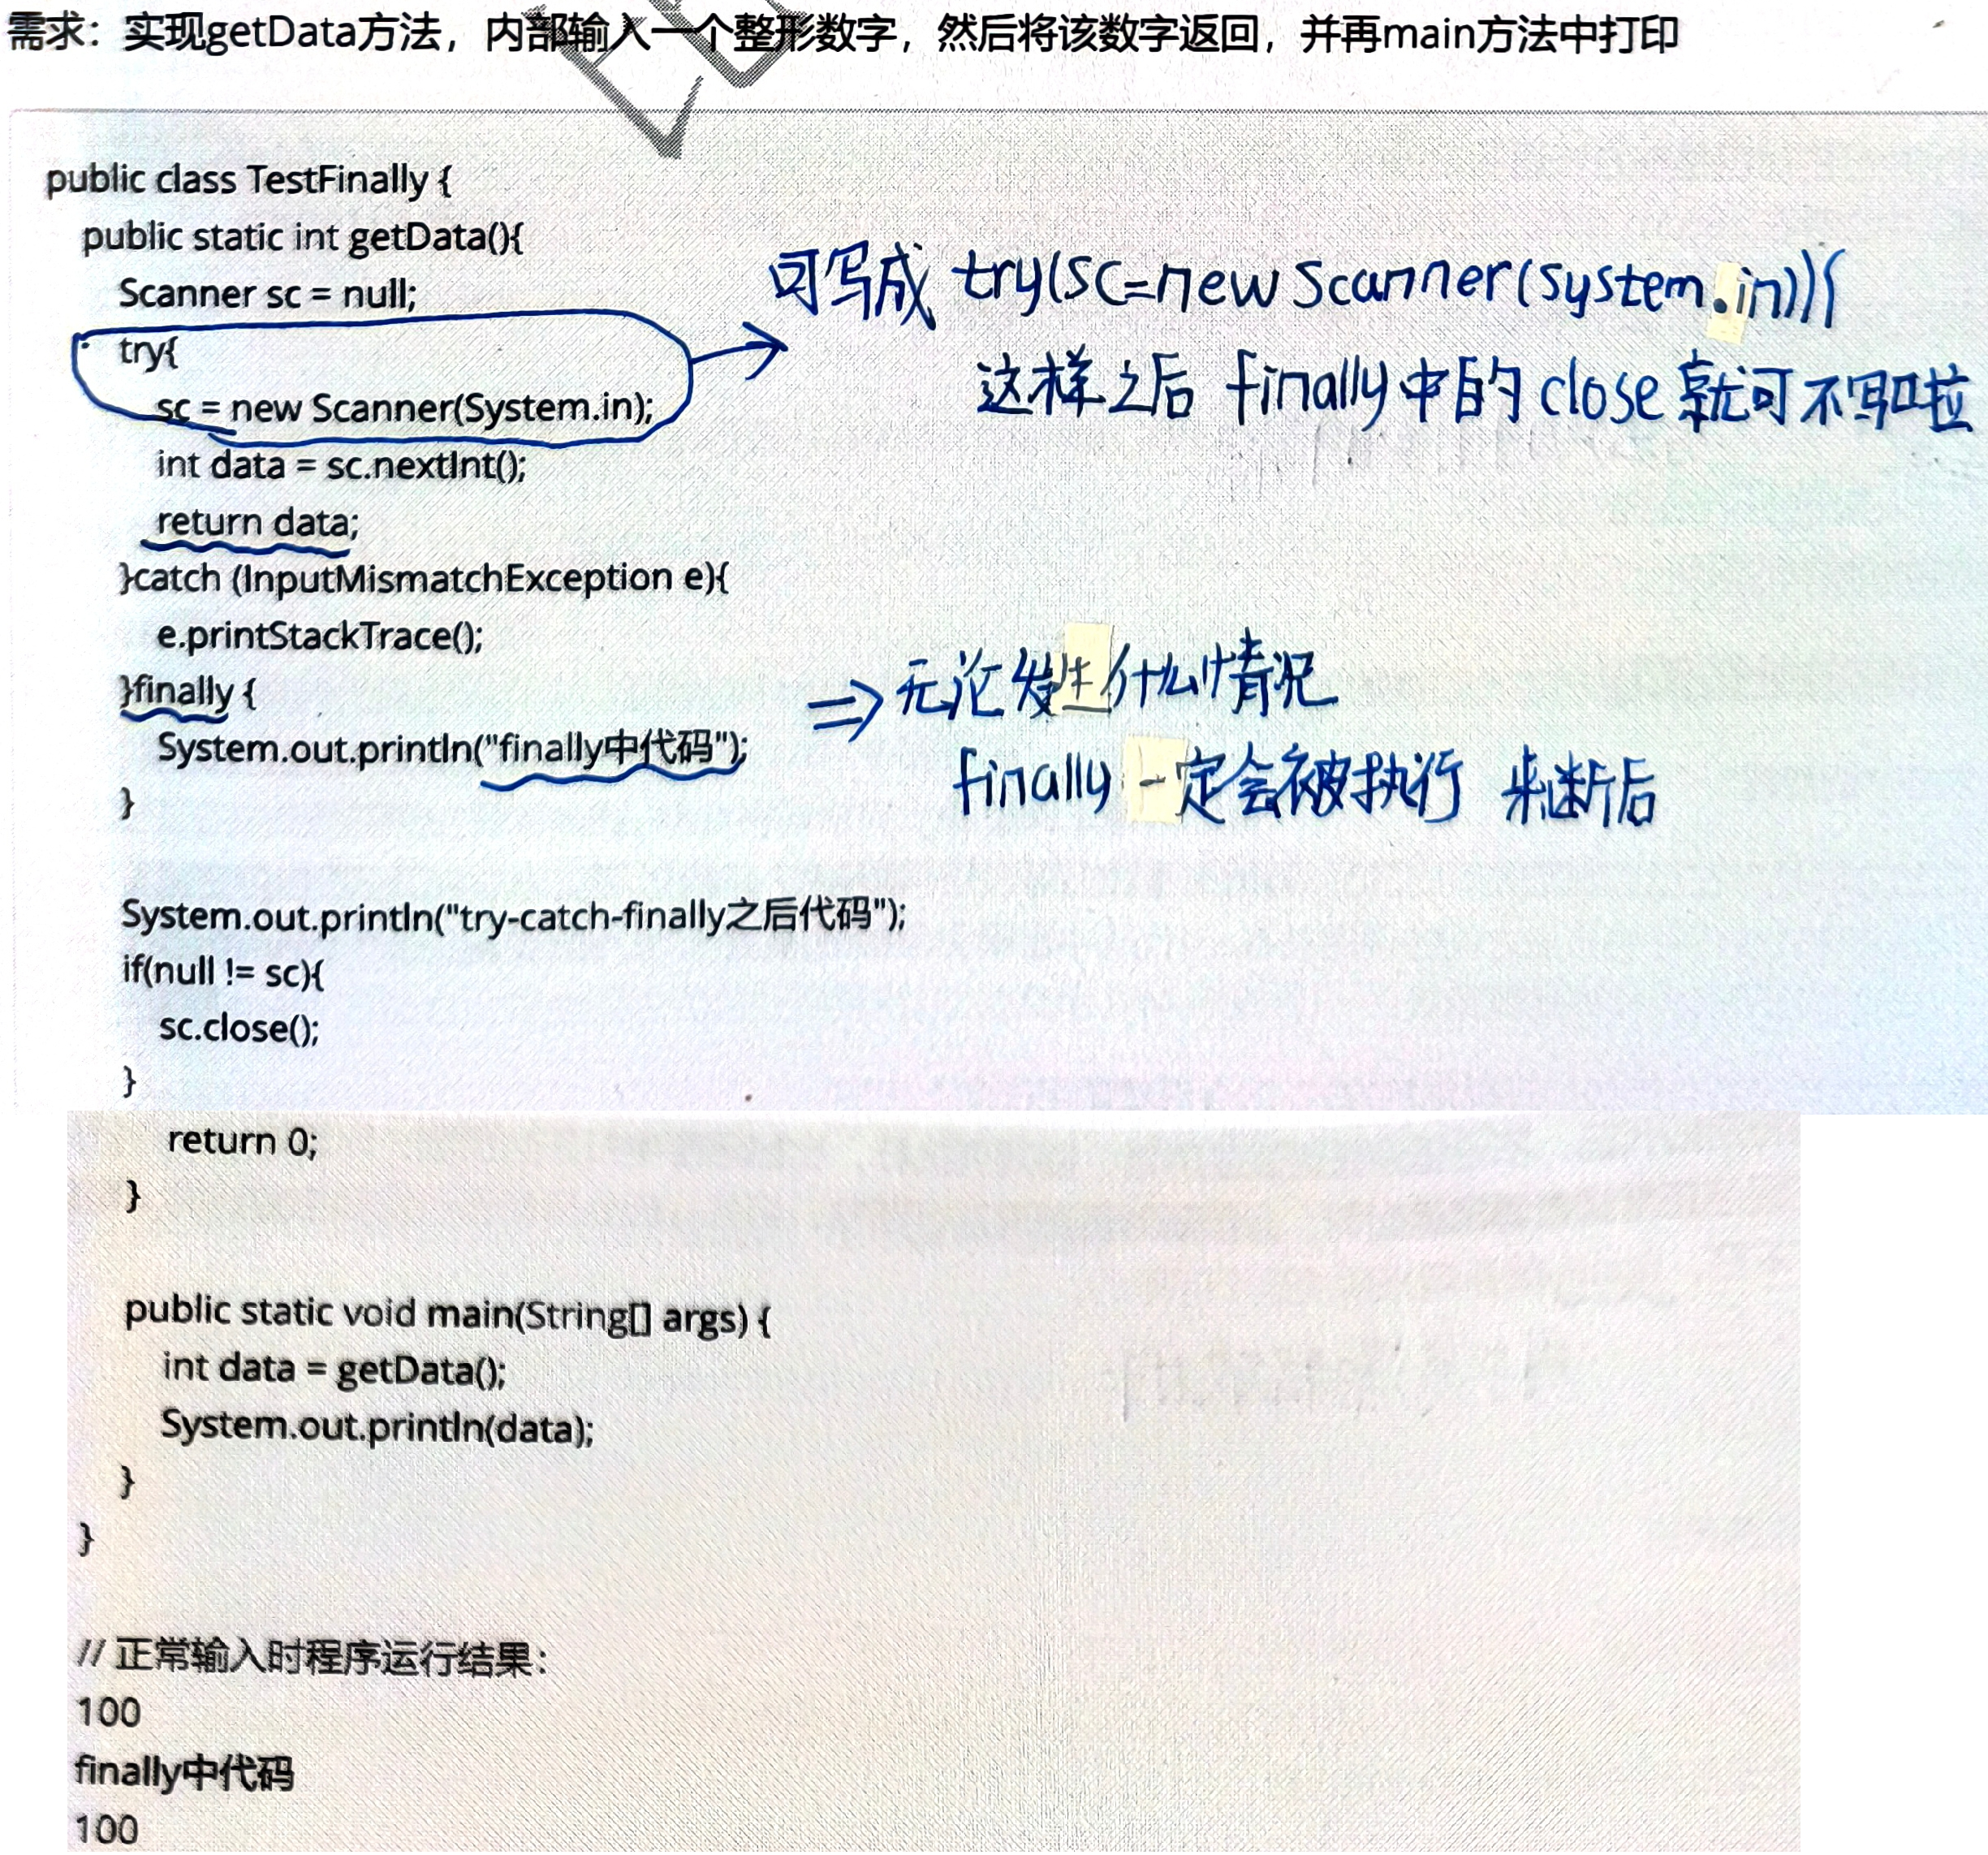 需求：实现getData方法，内部输入一个整形数字，然后将该数字返回，并再main方法中打印
public class TestFinally {
public static int getData(){
Scanner sc = null;
可写成 try(sc=new Scanner(system.in)){
try{
sc = new Scanner(System.in);
这样之后 finally中的close就可不写啦
int data = sc.nextInt();
return data;
}catch (InputMismatchException e){
e.printStackTrace();
}finally {
=> 无论发生什么情况
System.out.println("finally中代码");
finally 一定会被执行 来断后
}
System.out.println("try-catch-finally之后代码");
if(null != sc){
sc.close();
}
return 0;
}
public static void main(String[] args) {
int data = getData();
System.out.println(data);
}
}
// 正常输入时程序运行结果：
100
finally中代码
100